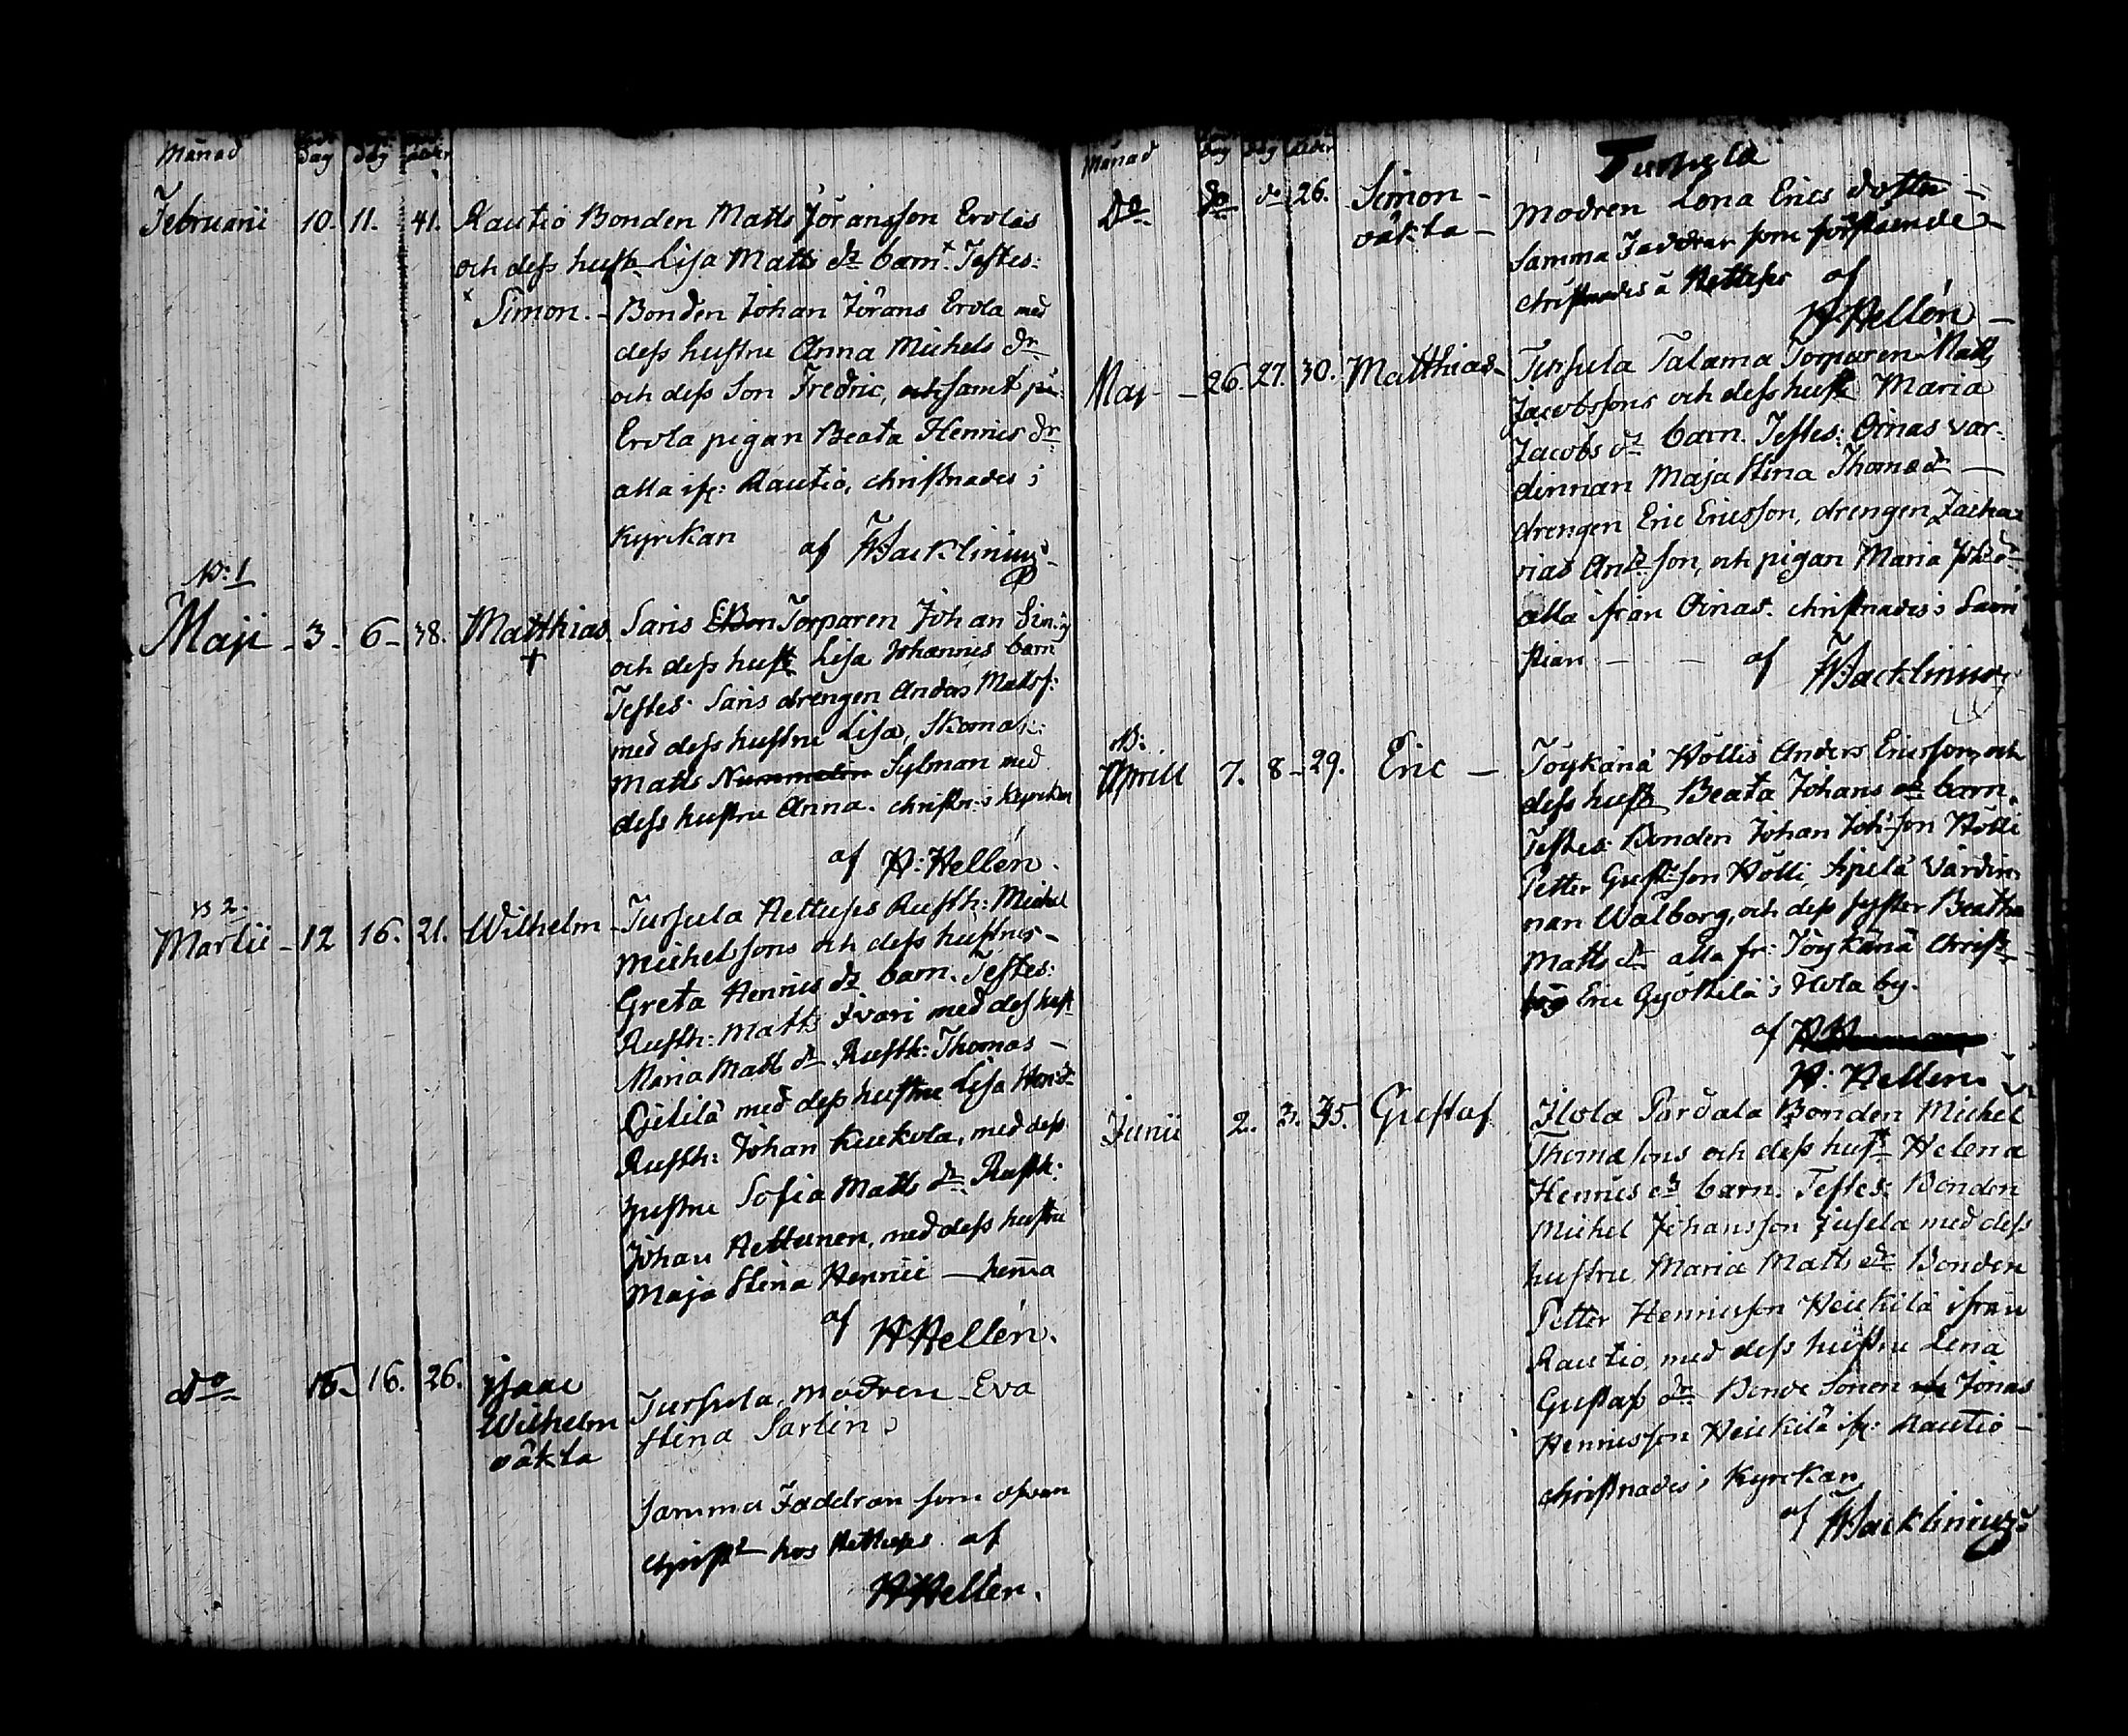 Månad dag dag ålder
Februarii 10. 11. 41. Rautio Bonden Matts Jöransson Ervlas
och dess hustr Lisa Matts dr barn. x Testes:
x Simon. - Bonden Johan Jörans Ervla med
dess hustru Anna Michels dr
och dess Son Fredric, och samt pi-
Ervla pigan Beata Henrics dr
alla ifr: Rautio, christnades i
Kyrkan af F Wacklinius
N: 1
Maji - 3. 6 - 38. Matthias Saris Torparen Johan Sim:s
+ och dess hustr Lisa Johannis barn
Testes. Saris drengen Anders Mattss:
med dess hustru Lisa, Skomak:
Matts Nummelin Sylman med
dess hustru Anna. christn: i Kyrckan
af H: Hellén.
N 2.
Martii - 12 16. 21. Wilhelm - Tursula Rettuses Rusth: Michel
Michelssons och dess hustrus -
Greta Henrics dr barn. Testes:
Rusth: Matts Ivari med dess hust
Maria Matts dr Rusth: Thomas -
med dess hustru Lisa Henr: dr
Rusth: Johan Kuckola, med dess
hustru Sofia Matts dr. Rusth:
Johan Rettunen, med dess hustru
Maja Stina Henrici — hema
af H Hellén.
do 15. 16. 26. Isaac
Wilhelm
oäkta
Tursula, modren Eva
Stina Sarlin
Samma Faddrar som ofvan
Christn hos Rettuses af
H Hellén.
Månad dag dag ålder
Tursula
do do do 26. Simon -
oäkta -
modren Lena Erics dotter -
Samma Faddrar som förestående -
christnades å Rettuses af
H Hellén -
Maj - 26. 27. 30. Matthias - Tursula Talama Torparen Matts
Jacobssons och dess hustr Maria
Jacobs dr barn. Testes: Oinas vär-
dinnan Maja Stina Thomæ dr —
drengen Eric Ericsson, drengen Zacha-
rias Andrs son, och pigan Maria Joh: dr
alla ifrån Oinas. christnades i Sacri
stian - - af F Wacklinius
N:
Aprill 7. 8 - 29. Eric — Töykänä Höllis Anders Ericssons och
dess hustr Beata Johans dr barn.
Testes: Bonden Johan Joh: son Hölli
Petter Gust: son Hölli, värdin-
nan Walborg, och dess syster Beatha
Matts dr alla fr: Töykänä Christ-
Eric i Ilola by.
af
H: Hellén.
Junii 2. 3. 35. Gustaf Ilola Pardala Bonden Michel
Thomasons och dess hustr Helena
Henrics dr barn. Testes: Bonden
Michel Johansson Jusela med dess
hustru Maria Matts dr Bonden
Petter Henricsson Heickilä ifrån
Rautio, med dess hustru Lena
Gustafs dr Bonde Sonen Jonas
Henricsson Heickilä ifr: Rautio -
christnades i Kyrkan
af F Wacklinius